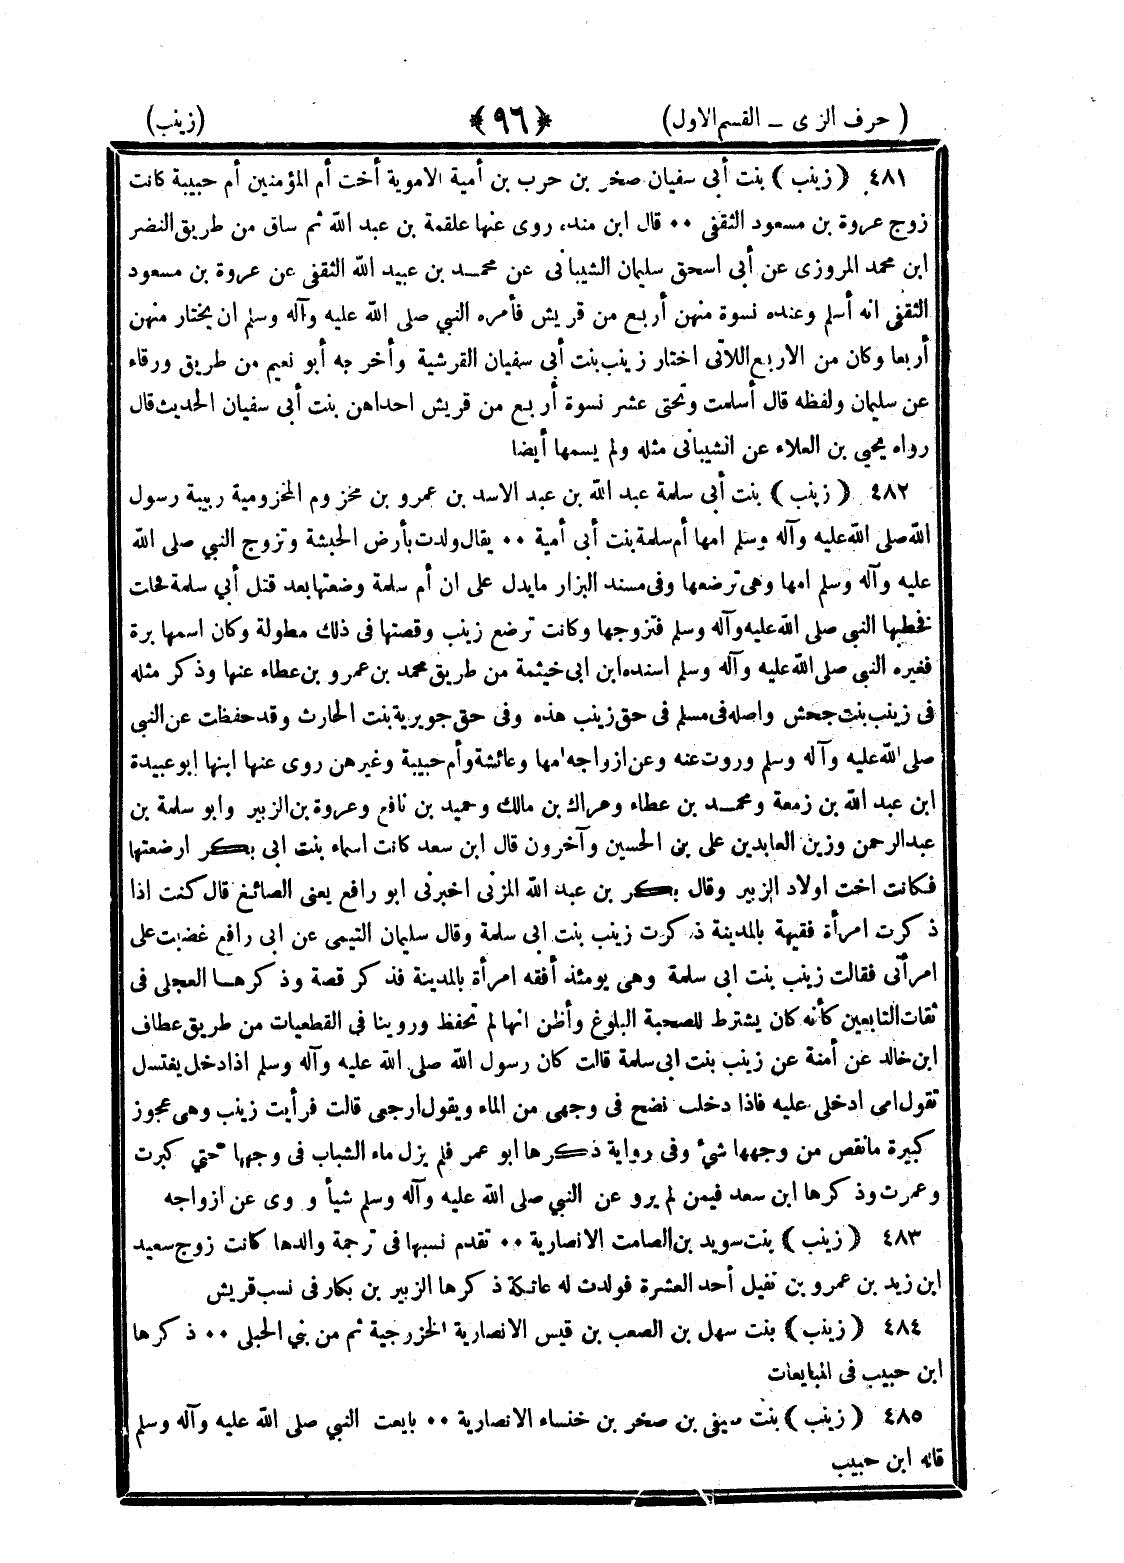 ( حرف الزى – القسم الاول) ﴿٩٦﴾ (زينب)
٤٨١ ( زينب ) بنت أبي سفيان صخر بن حرب بن أمية الاموية أخت أم المؤمنين أم حبيبة كانت
زوج عروة بن مسعود الثقفى ٠٠ قال ابن منده روى عنها علقمة بن عبد الله ثم ساق من طريق النضر
ابن محمد المروزى عن أبي اسحق سليمان الشيبانى عن محمد بن عبيد الله الثقفى عن عروة بن مسعود
الثقفى انه أسلم وعنده نسوة منهن أربع من قريش فأمره النبي صلى الله عليه وآله وسلم ان يختار منهن
أربعا وكان من الاربع اللاتى اختار زينب بنت أبي سفيان القرشية وأخرجه أبو نعيم من طريق ورقاء
عن سليمان ولفظه قال أسلمت وتحتى عشر نسوة أربع من قريش احداهن بنت أبي سفيان الحديث قال
رواه يحيى بن العلاء عن الشيبانى مثله ولم يسمها أيضا
٤٨٢ ( زينب ) بنت أبي سلمة عبد الله بن عبد الاسد بن عمرو بن مخزوم المخزومية ربيبة رسول
الله صلى الله عليه وآله وسلم امها أم سلمة بنت أبى أمية ٠٠ يقال ولدت بأرض الحبشة وتزوج النبي صلى الله
عليه وآله وسلم امها وهى ترضعها وفى مسند البزار مايدل على ان أم سلمة وضعتها بعد قتل أبي سلمة فحلت
فخطبها النبى صلى الله عليه وآله وسلم فتزوجها وكانت ترضع زينب وقصتها فى ذلك مطولة وكان اسمها برة
فغيره النبى صلى الله عليه وآله وسلم اسنده ابن ابى خيثمة من طريق محمد بن عمرو بن عطاء عنها وذكر مثله
فى زينب بنت جحش واصله فى مسلم فى حق زينب هذه وفى حق جويرية بنت الحارث وقد حفظت عن النبى
صلى الله عليه وآله وسلم وروت عنه وعن ازواجه امها وعائشة وأم حبيبة وغيرهن روى عنها ابنها ابو عبيدة
ابن عبد الله بن زمعة ومحمد بن عطاء وعراك بن مالك وحميد بن نافع وعروة بن الزبير وابو سلمة بن
عبدالرحمن وزين العابدين على بن الحسين وآخرون قال ابن سعد كانت اسماء بنت ابى بكر ارضعتها
فكانت اخت اولاد الزبير وقال بكر بن عبد الله المزنى اخبرنى ابو رافع يعنى الصائغ قال كنت اذا
ذكرت امرأة فقيهة بالمدينة ذكرت زينب بنت ابى سلمة وقال سليمان التيمى عن ابى رافع غضبت على
امرأتى فقالت زينب بنت ابى سلمة وهى يومئذ أفقه امرأة بالمدينة فذكر قصة وذكرها العجلى فى
ثقات التابعين كأنه كان يشترط للصحبة البلوغ وأظن انها لم تحفظ وروينا فى القطعيات من طريق عطاف
ابن خالد عن أمنة عن زينب بنت ابى سلمة قالت كان رسول الله صلى الله عليه وآله وسلم اذا دخل يغتسل
تقول امى ادخلى عليه فاذا دخلت نضح فى وجهى من الماء ويقول ارجعى قالت فرأيت زينب وهى عجوز
كبيرة مانقص من وجهها شئ وفى رواية ذكرها ابو عمر فلم يزل ماء الشباب فى وجهها حتي كبرت
وعمرت وذكرها ابن سعد فيمن لم يرو عن النبي صلى الله عليه وآله وسلم شيأ وروى عن ازواجه
٤٨٣ ( زينب ) بنت سويد بن الصامت الانصارية ٠٠ تقدم نسبها فى ترجمة والدها كانت زوج سعيد
ابن زيد بن عمرو بن نفيل أحد العشرة فولدت له عاتكة ذكرها الزبير بن بكار فى نسب قريش
٤٨٤ ( زينب ) بنت سهل بن الصعب بن قيس الانصارية الخزرجية ثم من بني الحبلى ٠٠ ذكرها
ابن حبيب فى المبايعات
٤٨٥ ( زينب ) بنت صيفى بن صخر بن خنساء الانصارية ٠٠ بايعت النبي صلى الله عليه وآله وسلم
قاله ابن حبيب